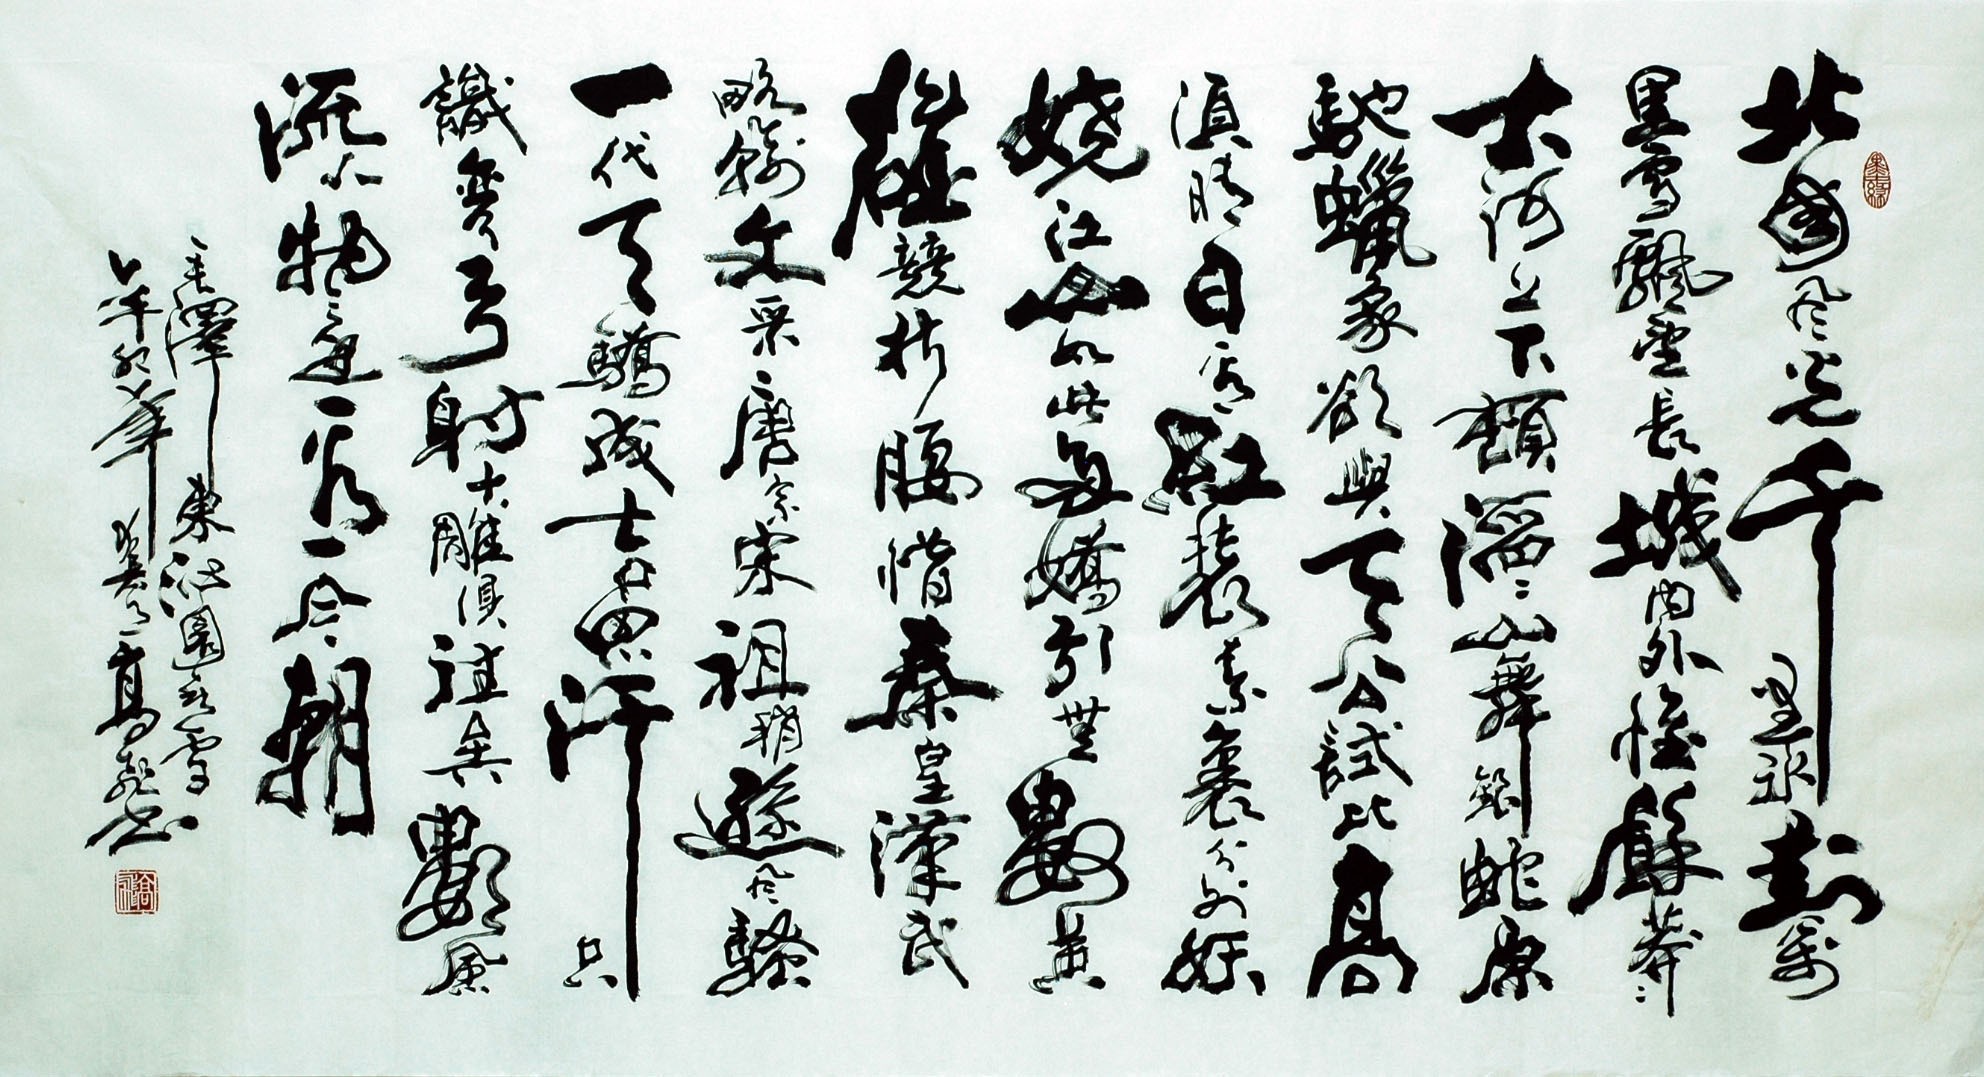 北國風光千里冰封萬
里雪飄望長城內外惟餘莽〻
大河上下頓滔〻山舞銀蛇原
馳蠟象欲與天公試比高
須晴日看紅裝素裹分外妖
嬈江山如此多嬌引無數英
雄競折腰惜秦皇漢武
略輸文采唐宗宋祖稍遜風騷
一代天驕成吉思汗只
識彎弓射大雕俱往矣數風
流人物還看今朝
毛澤東沁園春雪
辛卯年高書